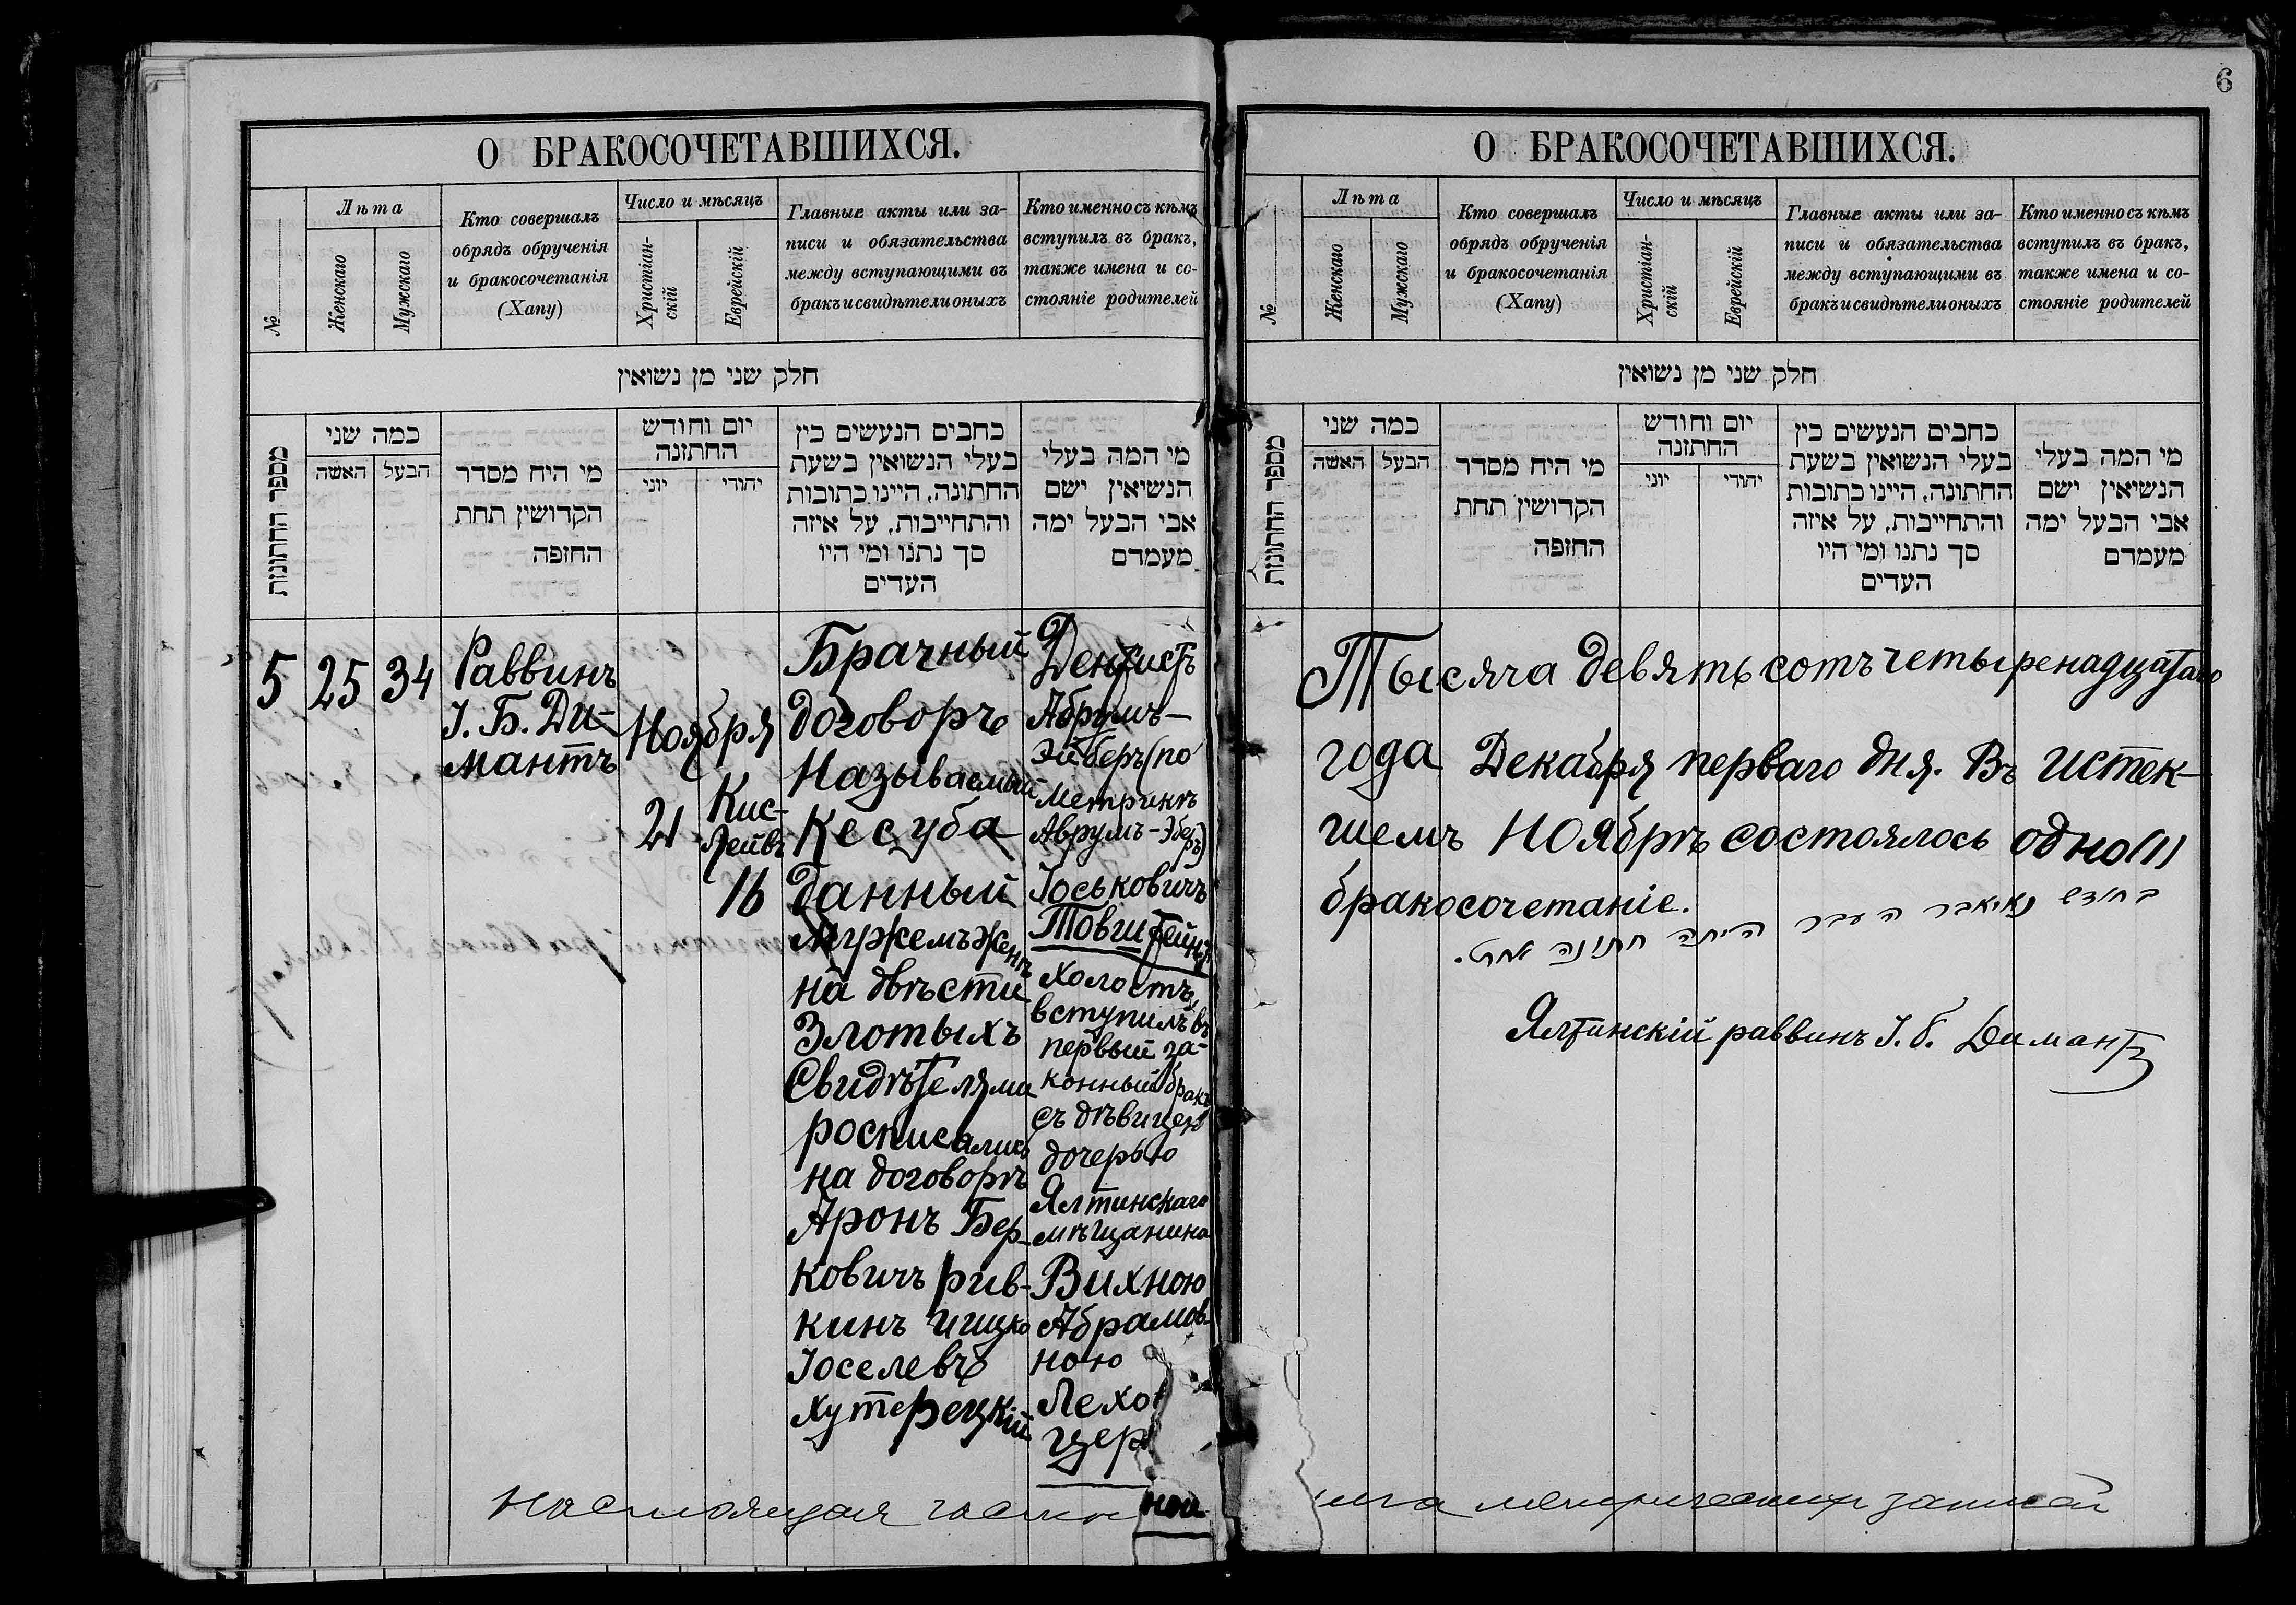 6
О БРАКОСОЧЕТАВШИХСЯ.
№
Лѣта
Женскаго
Мужскаго
Кто совершалъ
обрядъ обрученія
и бракосочетанія
(Хапу)
Число и мѣсяцъ
Христіан-
скій
Еврейскій
Главные акты или за-
писи и обязательства
между вступающими въ
бракъ и свидѣтели оныхъ
Кто именно съ кѣмъ
вступилъ въ бракъ,
также имена и со-
стояніе родителей
חלק שני מן נשואין
מספר החתונות
כמה שני
האשה
הבעל
מי היח מסדר
הקדושין תחת
החופה
יום וחודש
החתונה
יוני
יהודי
כחבים הנעשים כין
בעלי הנשואין בשעת
החתונה, היינו כתובות
והתחייבות, על איזה
סך נתנו ומי היו
העדים
מי המה בעלי
הנשיאין ישם
אבי הבעל ימה
מעמדם
5
25
34
Раввинъ
І. Б. Ди-
мантъ
Ноября
21
Кис-
лейвъ
16
Брачный
договоръ
Называемый
Кесуба
данный
Мужемъ Женѣ
на двѣсти
Злотыхъ
Свидѣтелями
росписались
на договорѣ
Аронъ Бер-
ковичъ Рив-
кинъ Ицко
Іоселевъ
Хутерецкій
Дентистъ
Абрумъ-
Эйберъ (по
метрикѣ
Аврумъ-Эберъ)
Іоськовичъ
Товштейнъ
Холостъ,
вступилъ въ
первый за-
конный бракъ
съ дѣвицею
дочерью
Ялтинскаго
мѣщанина
Вихною
Абрамов
ною
Лехо
цер
ной
Настоящая
О БРАКОСОЧЕТАВШИХСЯ.
№
Лѣта
Женскаго
Мужскаго
Кто совершалъ
обрядъ обрученія
и бракосочетанія
(Хапу)
Число и мѣсяцъ
Христіан-
скій
Еврейскій
Главные акты или за-
писи и обязательства
между вступающими въ
бракъ и свидѣтели оныхъ
Кто именно съ кѣмъ
вступилъ въ бракъ,
также имена и со-
стояніе родителей
חלק שני מן נשואין
מספר החתונות
כמה שני
האשה
הבעל
מי היח מסדר
הקדושין תחת
החופה
יום וחודש
החתונה
יוני
יהודי
כחבים הנעשים כין
בעלי הנשואין בשעת
החתונה, היינו כתובות
והתחייבות, על איזה
סך נתנו ומי היו
העדים
מי המה בעלי
הנשיאין ישם
אבי הבעל ימה
מעמדם
Тысяча девятьсотъ четыренадцатаго
года Декабря перваго дня. Въ истек-
шемъ Ноябрѣ состоялось одно (1)
бракосочетаніе.
בחודש נאיאבר העבר היתה חתונה אחת.
Ялтинскій раввинъ І. Б. Димантъ
метрическихъ записей